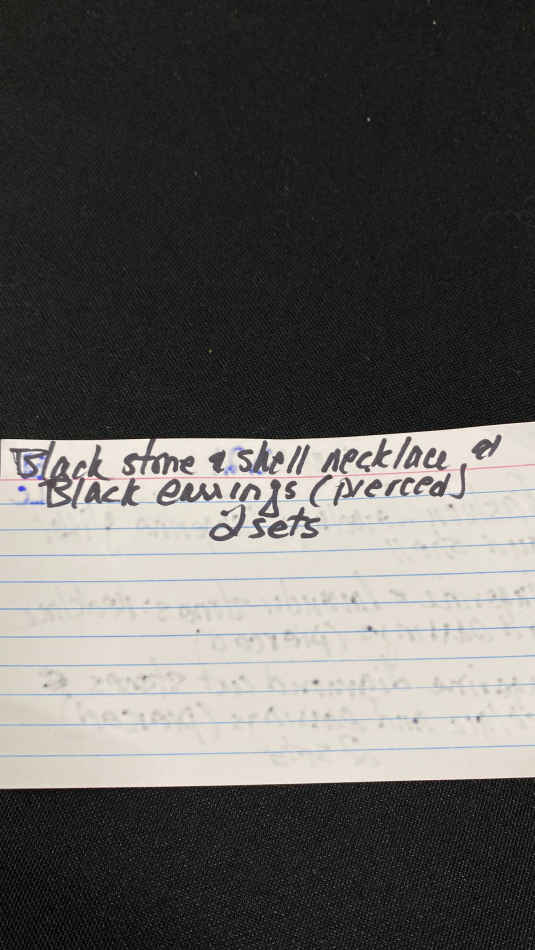 Black stone & shell necklace &
Black earrings (pierced)
2 sets